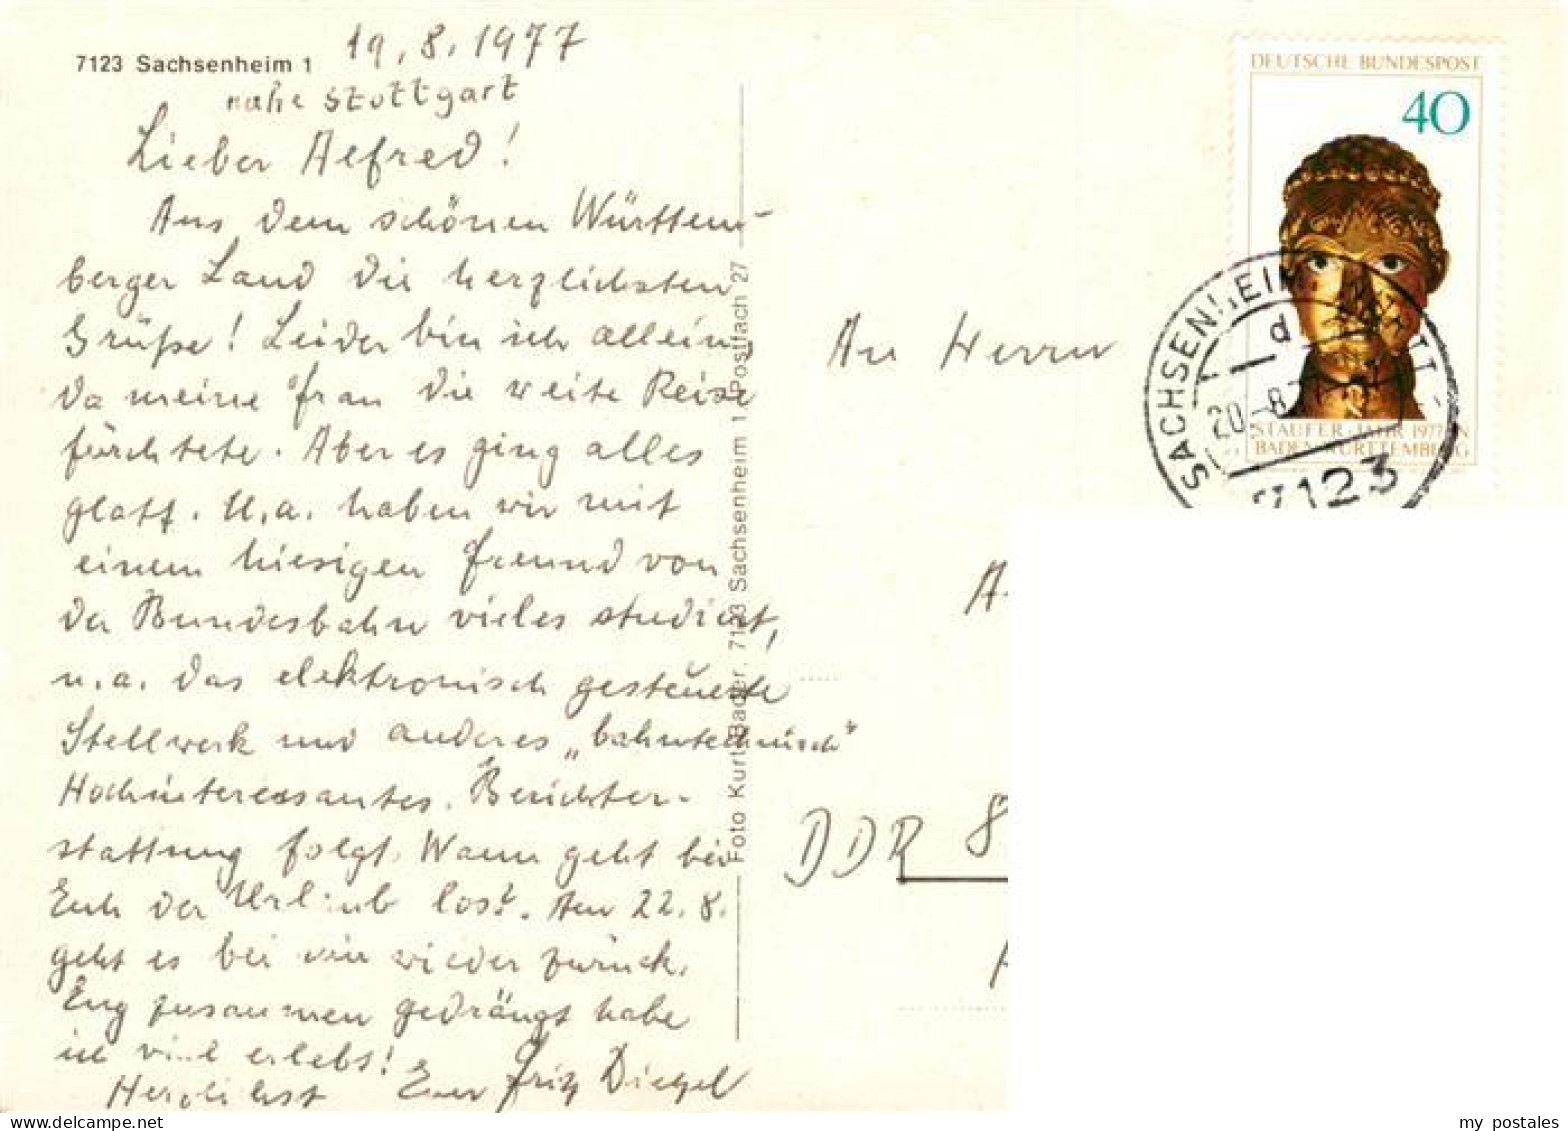 7123 Sachsenheim 1
19.8.1977
nahe Stottgart
Lieber Alfred!
Aus dem schönen Württem-
berger Land die herzlichsten
Grüße! Leider bin ich allein,
da meine Frau die weite Reise
fürchtete. Aber es ging alles
glatt. U.a. haben wir mit
einem hiesigen Freund von
der Bundesbahn vieles studiert,
u.a. das elektronisch gesteuerte
Stellwerk und anderes „bahntechnisch"
Hochinteressantes. Berichter-
stattung folgt. Wann geht bei
Euch der Urlaub los?. Am 22.8.
geht es bei mir wieder zurück.
Eng zusammen gedrängt habe
ich viel erlebt!
Herzlichst Euer Fritz
Foto Kurt Bader, 7123 Sachsenheim 1, Postfach 27
DEUTSCHE BUNDESPOST
40
STAUFER-JAHR 1977 IN
BADEN-WÜRTTEMBERG
SACHSENHEIM
d
20.-8.77
7123
An Herrn
DDR 8
my_postales
www.delcampe.net